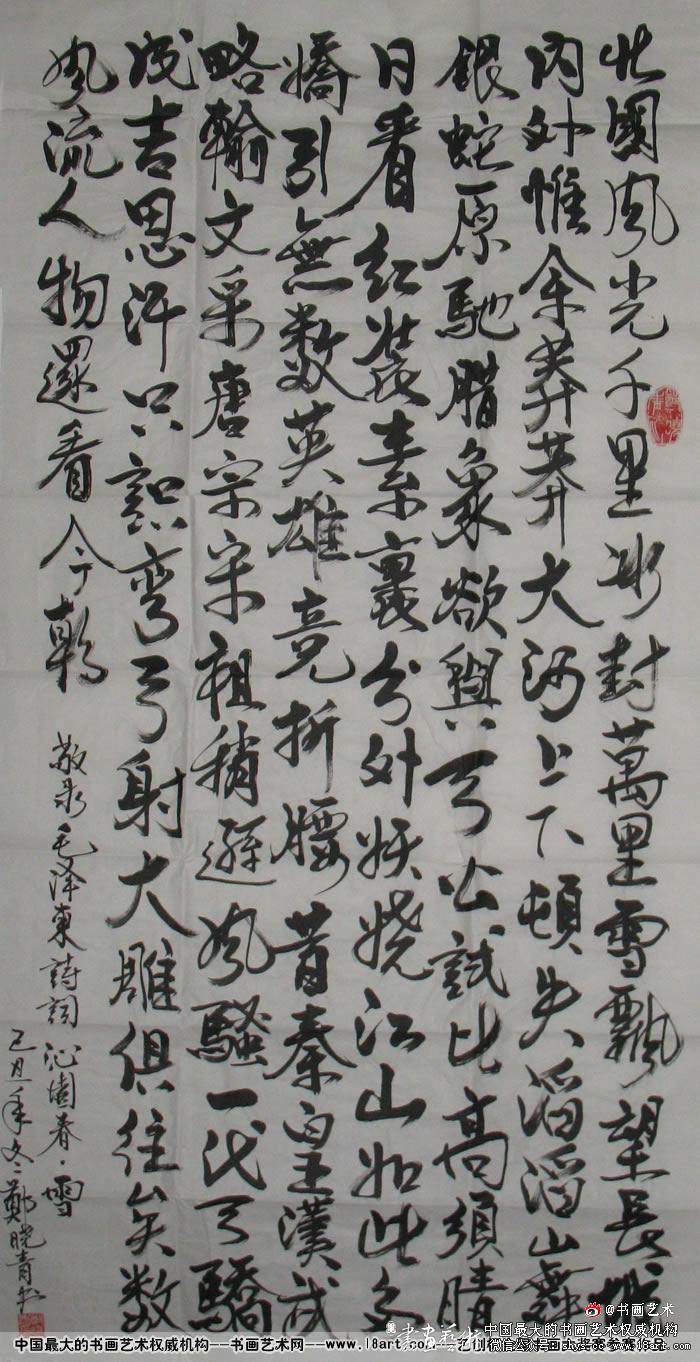 北國風光千里冰封萬里雪飄望長城
内外惟余莽莽大河上下頓失滔滔山舞
銀蛇原馳腊象欲與天公試比高須晴
日看紅裝素裹分外妖嬈江山如此多
嬌引無数英雄竞折腰昔秦皇漢武
略輸文采唐宗宋祖稍遜風騷一代天驕
成吉思汗只識弯弓射大雕俱往矣数
風流人物還看今朝
敬录毛泽東詩詞沁園春·雪
己丑年冬鄭晓青书
@书画艺术
中国最大的书画艺术权威机构——书画艺术网——www.18art.com